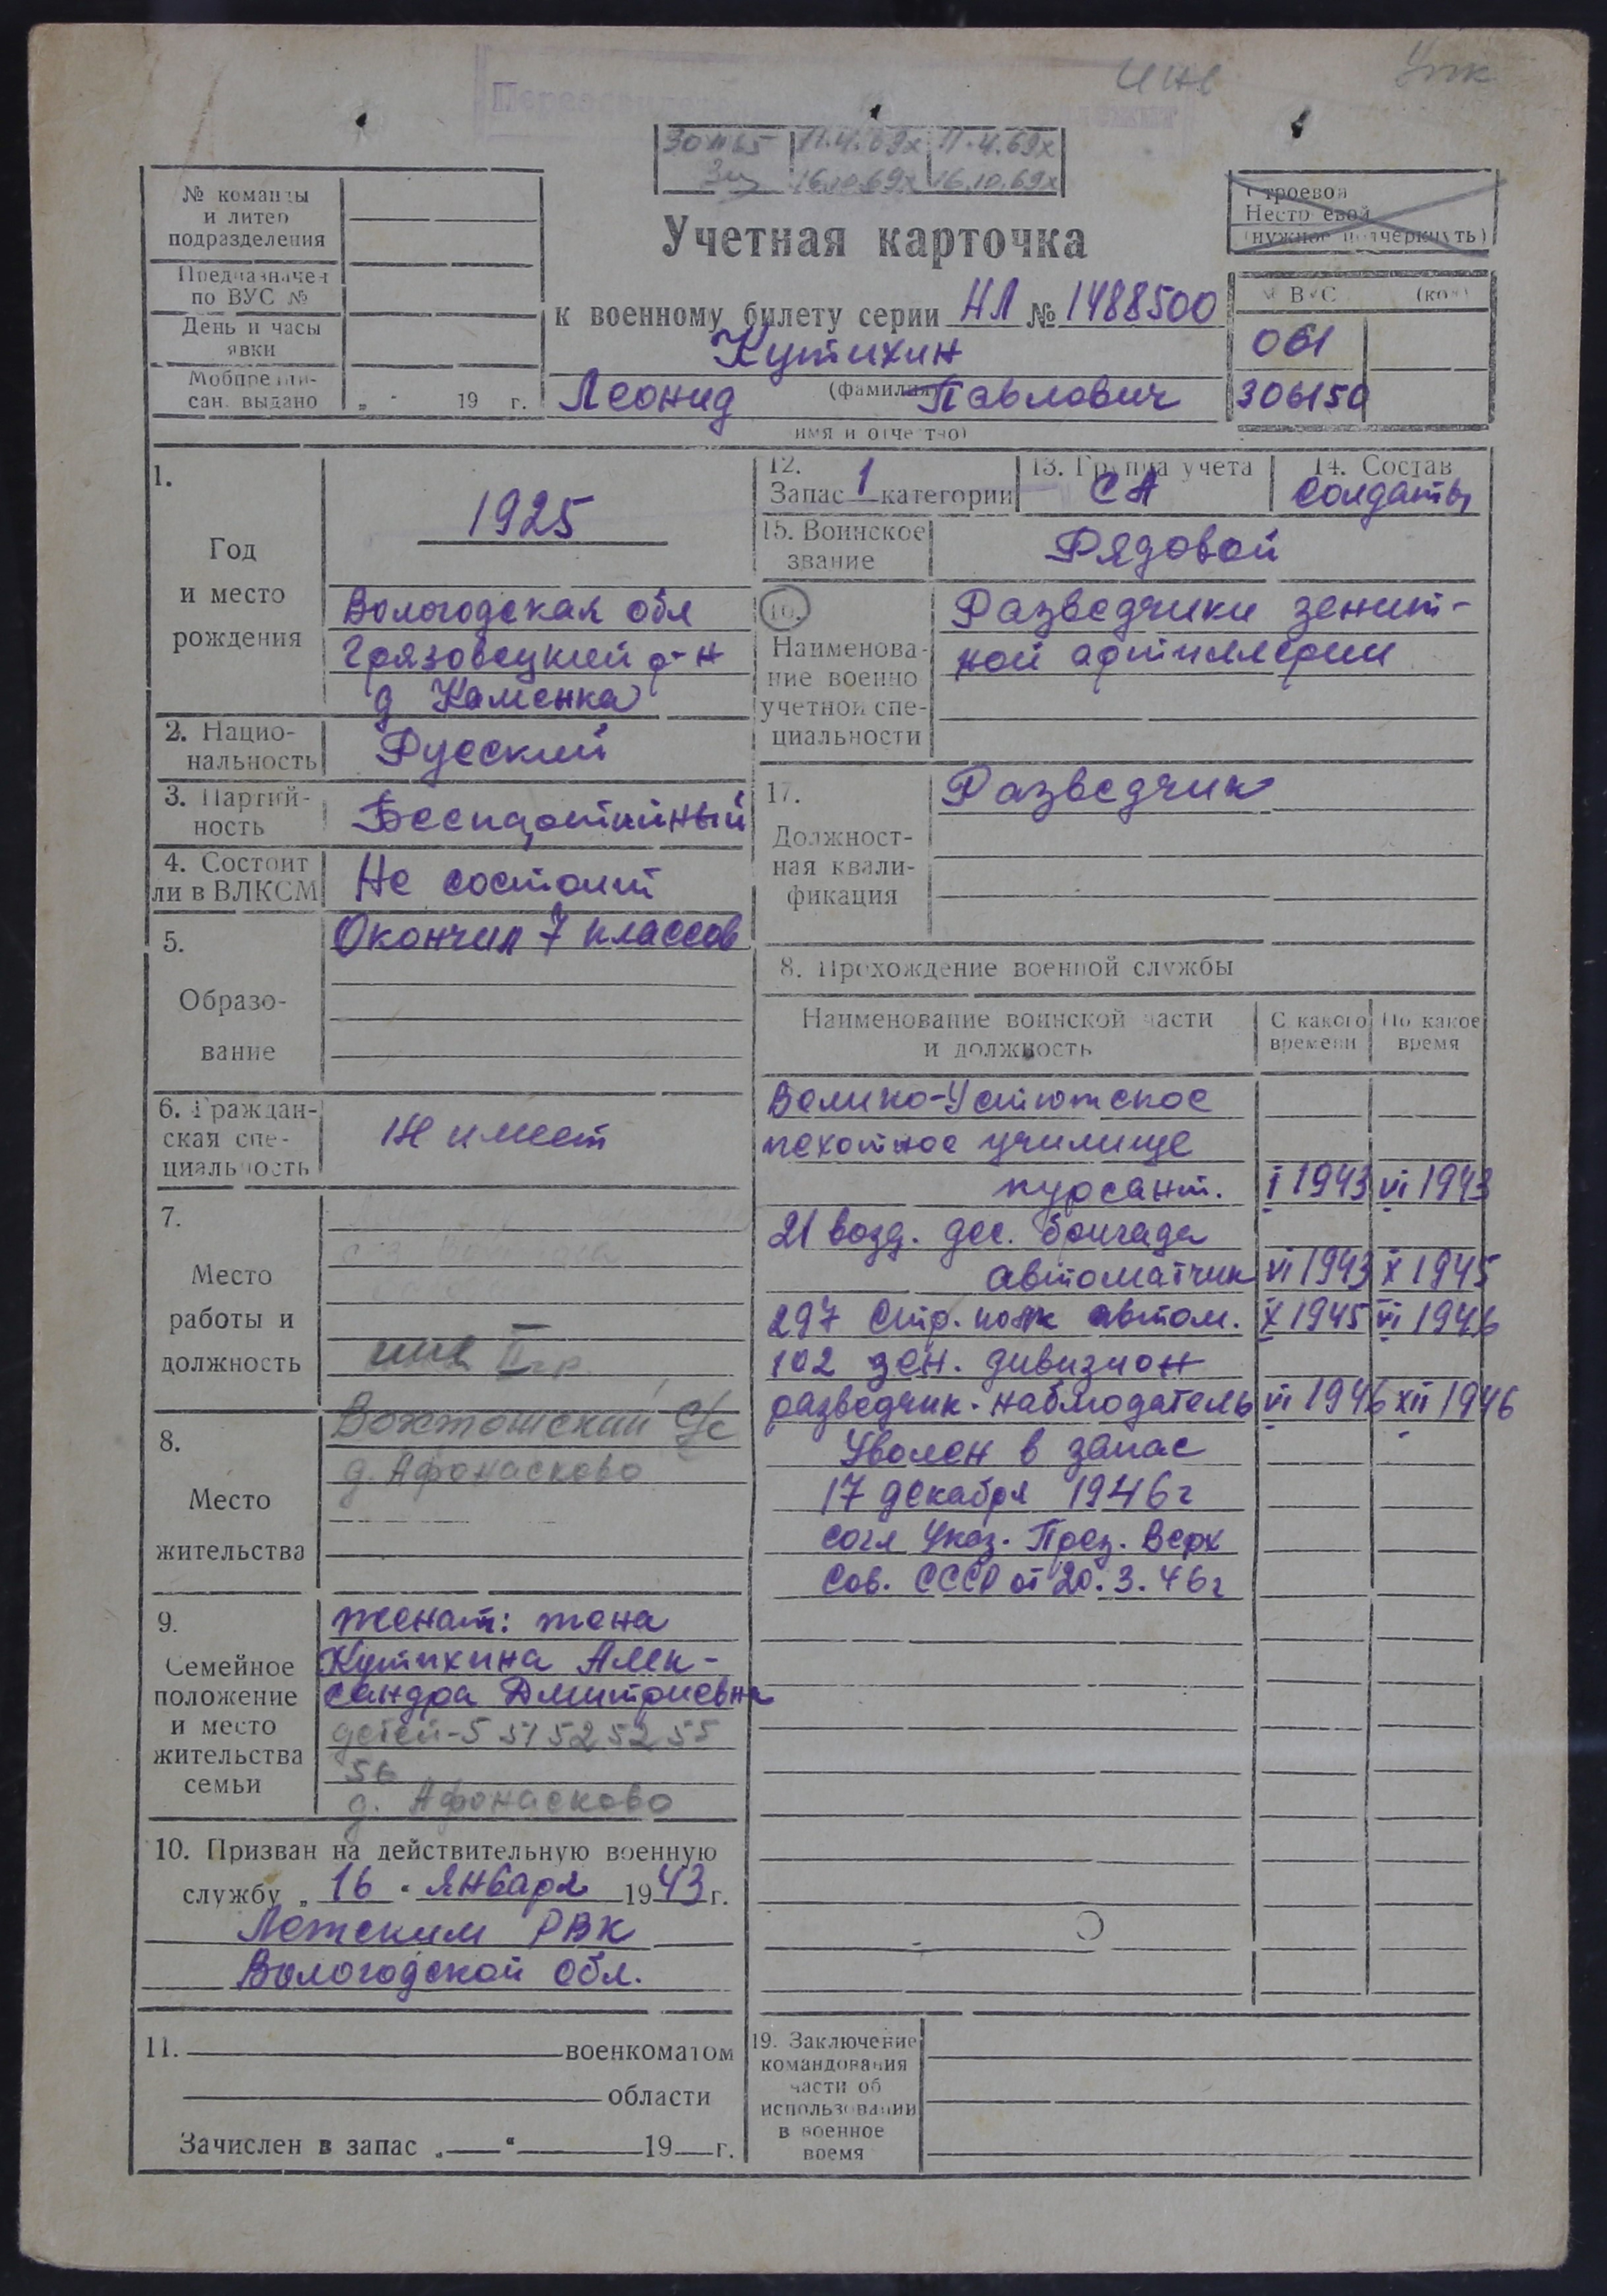 Инв
30 11 65 11.4.69х 11.4.69х
16.10.69х 16.10.69х
№ команды
и литер
подразделения
Предназначен
по ВУС №
День и часы
явки
Мобпредпи-
сан. выдано „ " 19 г.
Учетная карточка
к военному билету серии НЛ № 1488500
Кутихин
(фамилия)
Леонид Павлович
имя и отчество)
Строевой
Нестроевой
(нужное подчеркнуть)
ВУС (код)
061
306150
1.
Год
и место
рождения
1925
Вологодская обл
Грязовецкий р-н
д Каменка
2. Нацио-
нальность
Русский
3. Партий-
ность
Беспартийный
4. Состоит
ли в ВЛКСМ
Не состоит
5.
Образо-
вание
Окончил 7 классов
6. Граждан-
ская спе-
циальность
Не имеет
7.
Место
работы и
должность
инв II гр.
8.
Место
жительства
Вохтожский С/с
д. Афонасково
9.
Семейное
положение
и место
жительства
семьи
женат: жена
Кутихина Алек-
сандра Дмитриевна
детей-5 51 52 52 55
56
д. Афонасково
10. Призван на действительную военную
службу „ 16 " января 1943 г.
Лежским РВК
Вологодской обл.
11. военкоматом
области
Зачислен в запас „ " 19 г.
12.
Запас 1 категории
13. Группа учета
СА
14. Состав
Солдаты
15. Воинское
звание
Рядовой
16.
Наименова-
ние военно
учетной спе-
циальности
Разведчики зенит-
ной артиллерии
17.
Должност-
ная квали-
фикация
Разведчик
8. Прохождение военной службы
Наименование воинской части
и должность
С какого
времени
По какое
время
Велико-Устюжское
пехотное училище
курсант. I 1943 VI 1943
21 возд. дес. бригада
автоматчик VI 1943 X 1945
297 Стр. полк автом. X 1945 VI 1946
102 зен. дивизион
разведчик-наблюдатель VI 1946 XII 1946
Уволен в запас
17 декабря 1946 г
согл Указ. През. Верх
Сов. СССР от 20.3.46г
19. Заключение
командования
части об
использовании
в военное
время